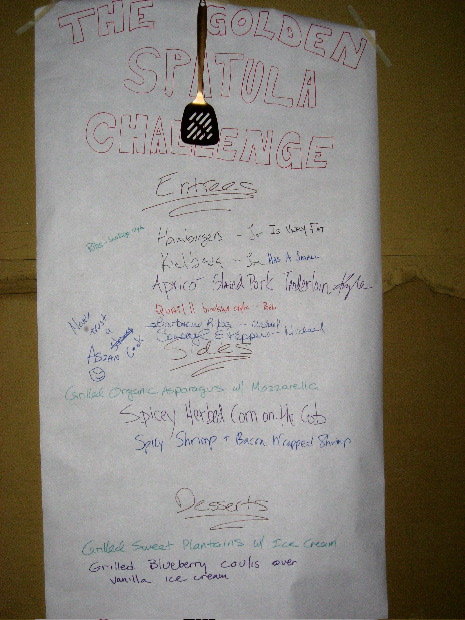 THE GOLDEN
SPATULA
CHALLENGE
Entrees
Hamburgers - Jon Is Very Fat
Kielbasa - Jon Has A
Apricot Glazed Pork Tenderloin Kyle
Ribs -
Never
trust
a
Asian Cook
Sausage & Peppers - Michael
Sides
Grilled Organic Asparagus w/ Mozzarella
Spicey Herbed Corn on the Cob
Spicy Shrimp + Bacon Wrapped Shrimp
Desserts
Grilled Sweet Plantains w/ Ice Cream
Grilled Blueberry coulis over
vanilla ice cream